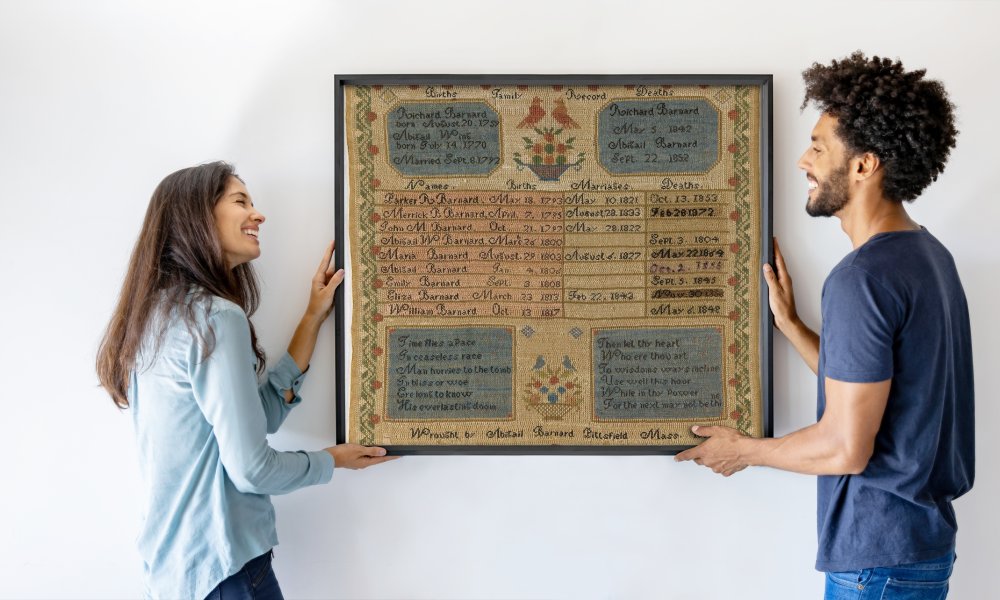 Births Family Record Deaths
Richard Barnard
born August 20. 1767
Abigail Wing
born July 14. 1770
Married Sept. 6. 1792
Richard Barnard
May 5. 1842
Abigail Barnard
Sept. 22. 1852
Names. Births Marriages. Deaths.
Parker R. Barnard. May 18. 1793 May 10. 1821 Oct. 13. 1853
Merrick P. Barnard, April. 7. 1795 August 28. 1833 Feb 28 1872
John M. Barnard Oct. 21. 1797 May 28. 1822
Abigail W. Barnard. Mar 26 1800 Sept. 3. 1804
Maria Barnard August. 29. 1803 August 6. 1827 May 22 1864
Abigail Barnard Jan. 4. 1806 Oct. 2.
Emily Barnard Sept. 3. 1808 Sept. 5. 1845
Eliza Barnard March. 23 1813 Feb 22. 1842 Nov 30
William Barnard Oct 13 1817 May 6. 1842
Time flies a Pace
In ceaseless race
Man hurries to the tomb
In bliss or woe
Ere long to know
His everlasting doom
Then let thy heart
Who ere thou art
To wisdoms ways incline
Use well this hour
While in thy Power
For the next may not be th
ne
Wrought by Abigail Barnard Pittsfield Mass.